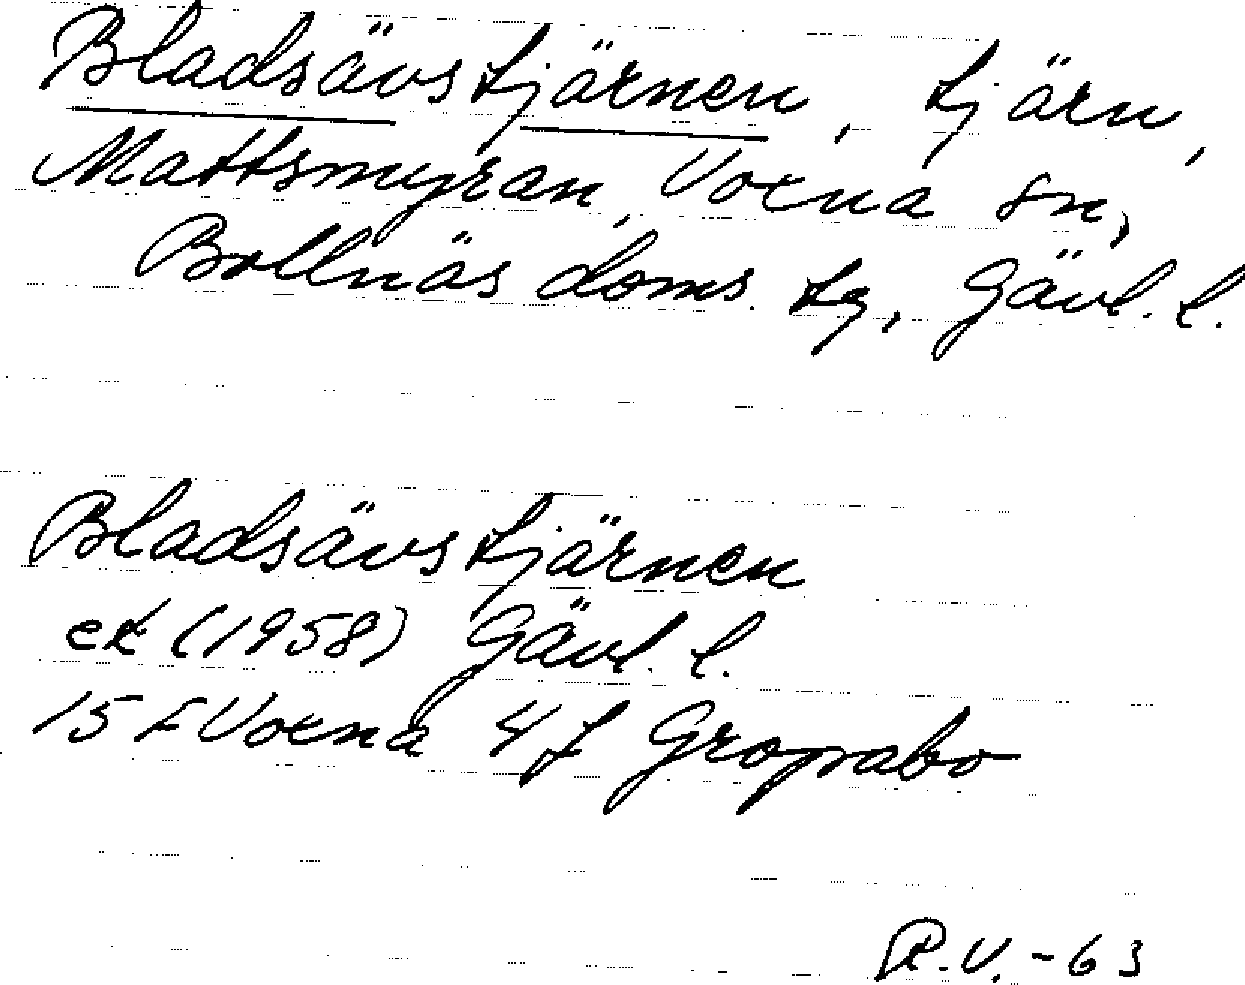 Bladsävstjärnen, tjärn,
Mattsmyran, Voxna sn,
Bollnäs doms. tg, Gävl. l.
Bladsävstjärnen
ek (1958) Gävl. l.
15 F Voxna 4 f Gropabo
R.V.-63